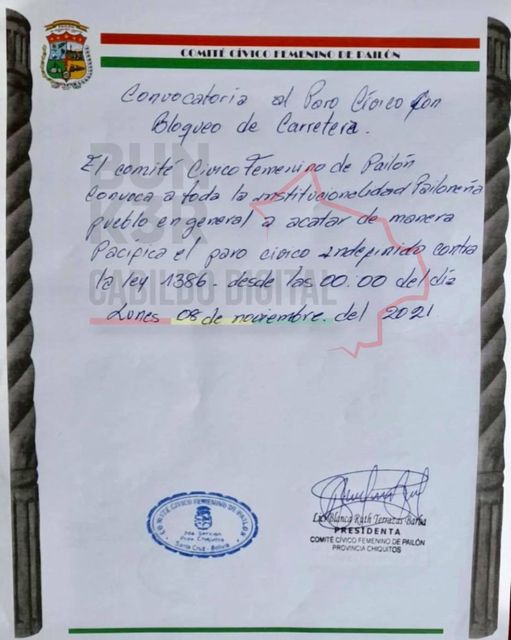 COMITÉ CÍVICO FEMENINO DE PAILÓN
Convocatoria al Paro Cívico Con
Bloqueo de Carretera.
El comité Cívico Femenino de Pailón
Convoca a toda la institucionalidad Pailoneña
pueblo en general a acatar de manera
Pacifica el paro civico indefinido contra
la ley 1386 - desde las 00:00 del día
Lunes 08 de noviembre. del 2021
CABILDO DIGITAL
COMITÉ CÍVICO FEMENINO DE PAILÓN
2da Sección
Prov. Chiquitos
Santa Cruz - Bolivia
Blanca Ruth Terrazas Barba
PRESIDENTA
COMITÉ CÍVICO FEMENINO DE PAILÓN
PROVINCIA CHIQUITOS